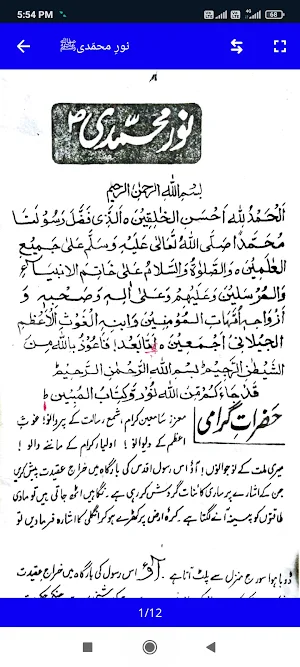 5:54 PM
68
نورِ محمّدی ﷺ
٨
نورِ محمّدیؐ
بِسْمِ اللهِ الرَّحْمٰنِ الرَّحِيْمِ
اَلْحَمْدُ لِلّٰهِ اَحْسَنِ الْخٰلِقِيْنَ ٥ اَلَّذِىْ فَضَّلَ رَسُوْلَنَا
مُحَمَّدًا صَلَّى اللهُ تَعَالٰى عَلَيْهِ وَسَلَّمَ عَلٰى جَمِيْعِ
الْعٰلَمِيْنَ ٥ وَالصَّلٰوةُ وَالسَّلَامُ عَلٰى خَاتِمِ الْاَنْبِيَآءِ
وَالْمُرْسَلِيْنَ وَعَلَيْهِمْ وَعَلٰى اٰلِهٖ وَصَحْبِهٖ وَ
اَزْوَاجِهٖ اُمَّهَاتِ الْمُؤْمِنِيْنَ وَابْنِهِ الْغَوْثِ الْاَعْظَمِ
الْجِيْلَانِى اَجْمَعِيْنَ ٥ اَمَّا بَعْدُ! فَاَعُوْذُ بِاللهِ مِنَ
الشَّيْطٰنِ الرَّجِيْمِ ط بِسْمِ اللهِ الرَّحْمٰنِ الرَّحِيْمِ ط
قَدْ جَآءَكُمْ مِّنَ اللهِ نُوْرٌ وَّكِتَابٌ الْمُبِيْن ط
حضراتِ گرامی
معزز سامعین کرام، شمع رسالت کے پروانو! غوث
اعظم کے دیوانو! اولیاء کرام کے ماننے والو!
میری ملت کے نوجوانوں! آؤ اس رسول اقدس کی بارگاہ میں خراج عقیدت پیش کریں
جن کے اشارے پر ساری کائنات گردش کر رہی ہے۔ نگاہیں اٹھ جاتی ہیں تو ساری
طاقتوں کو پسینہ آنے لگتا ہے۔ کرۂ ارض پر کھڑے ہو کر انگلی کا اشارہ فرما دیں تو
ڈوبا ہوا سورج منزل سے پلٹ آتا ہے۔ آؤ اس رسول کی بارگاہ میں خراج عقیدت
1/12